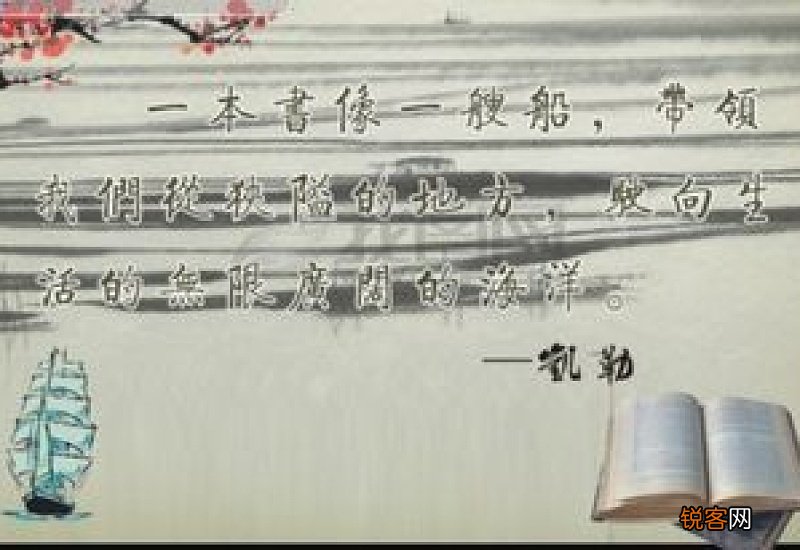 一本書像一艘船，帶領
我們從狹隘的地方，駛向生
活的無限廣闊的海洋。
—凱勒
锐客网